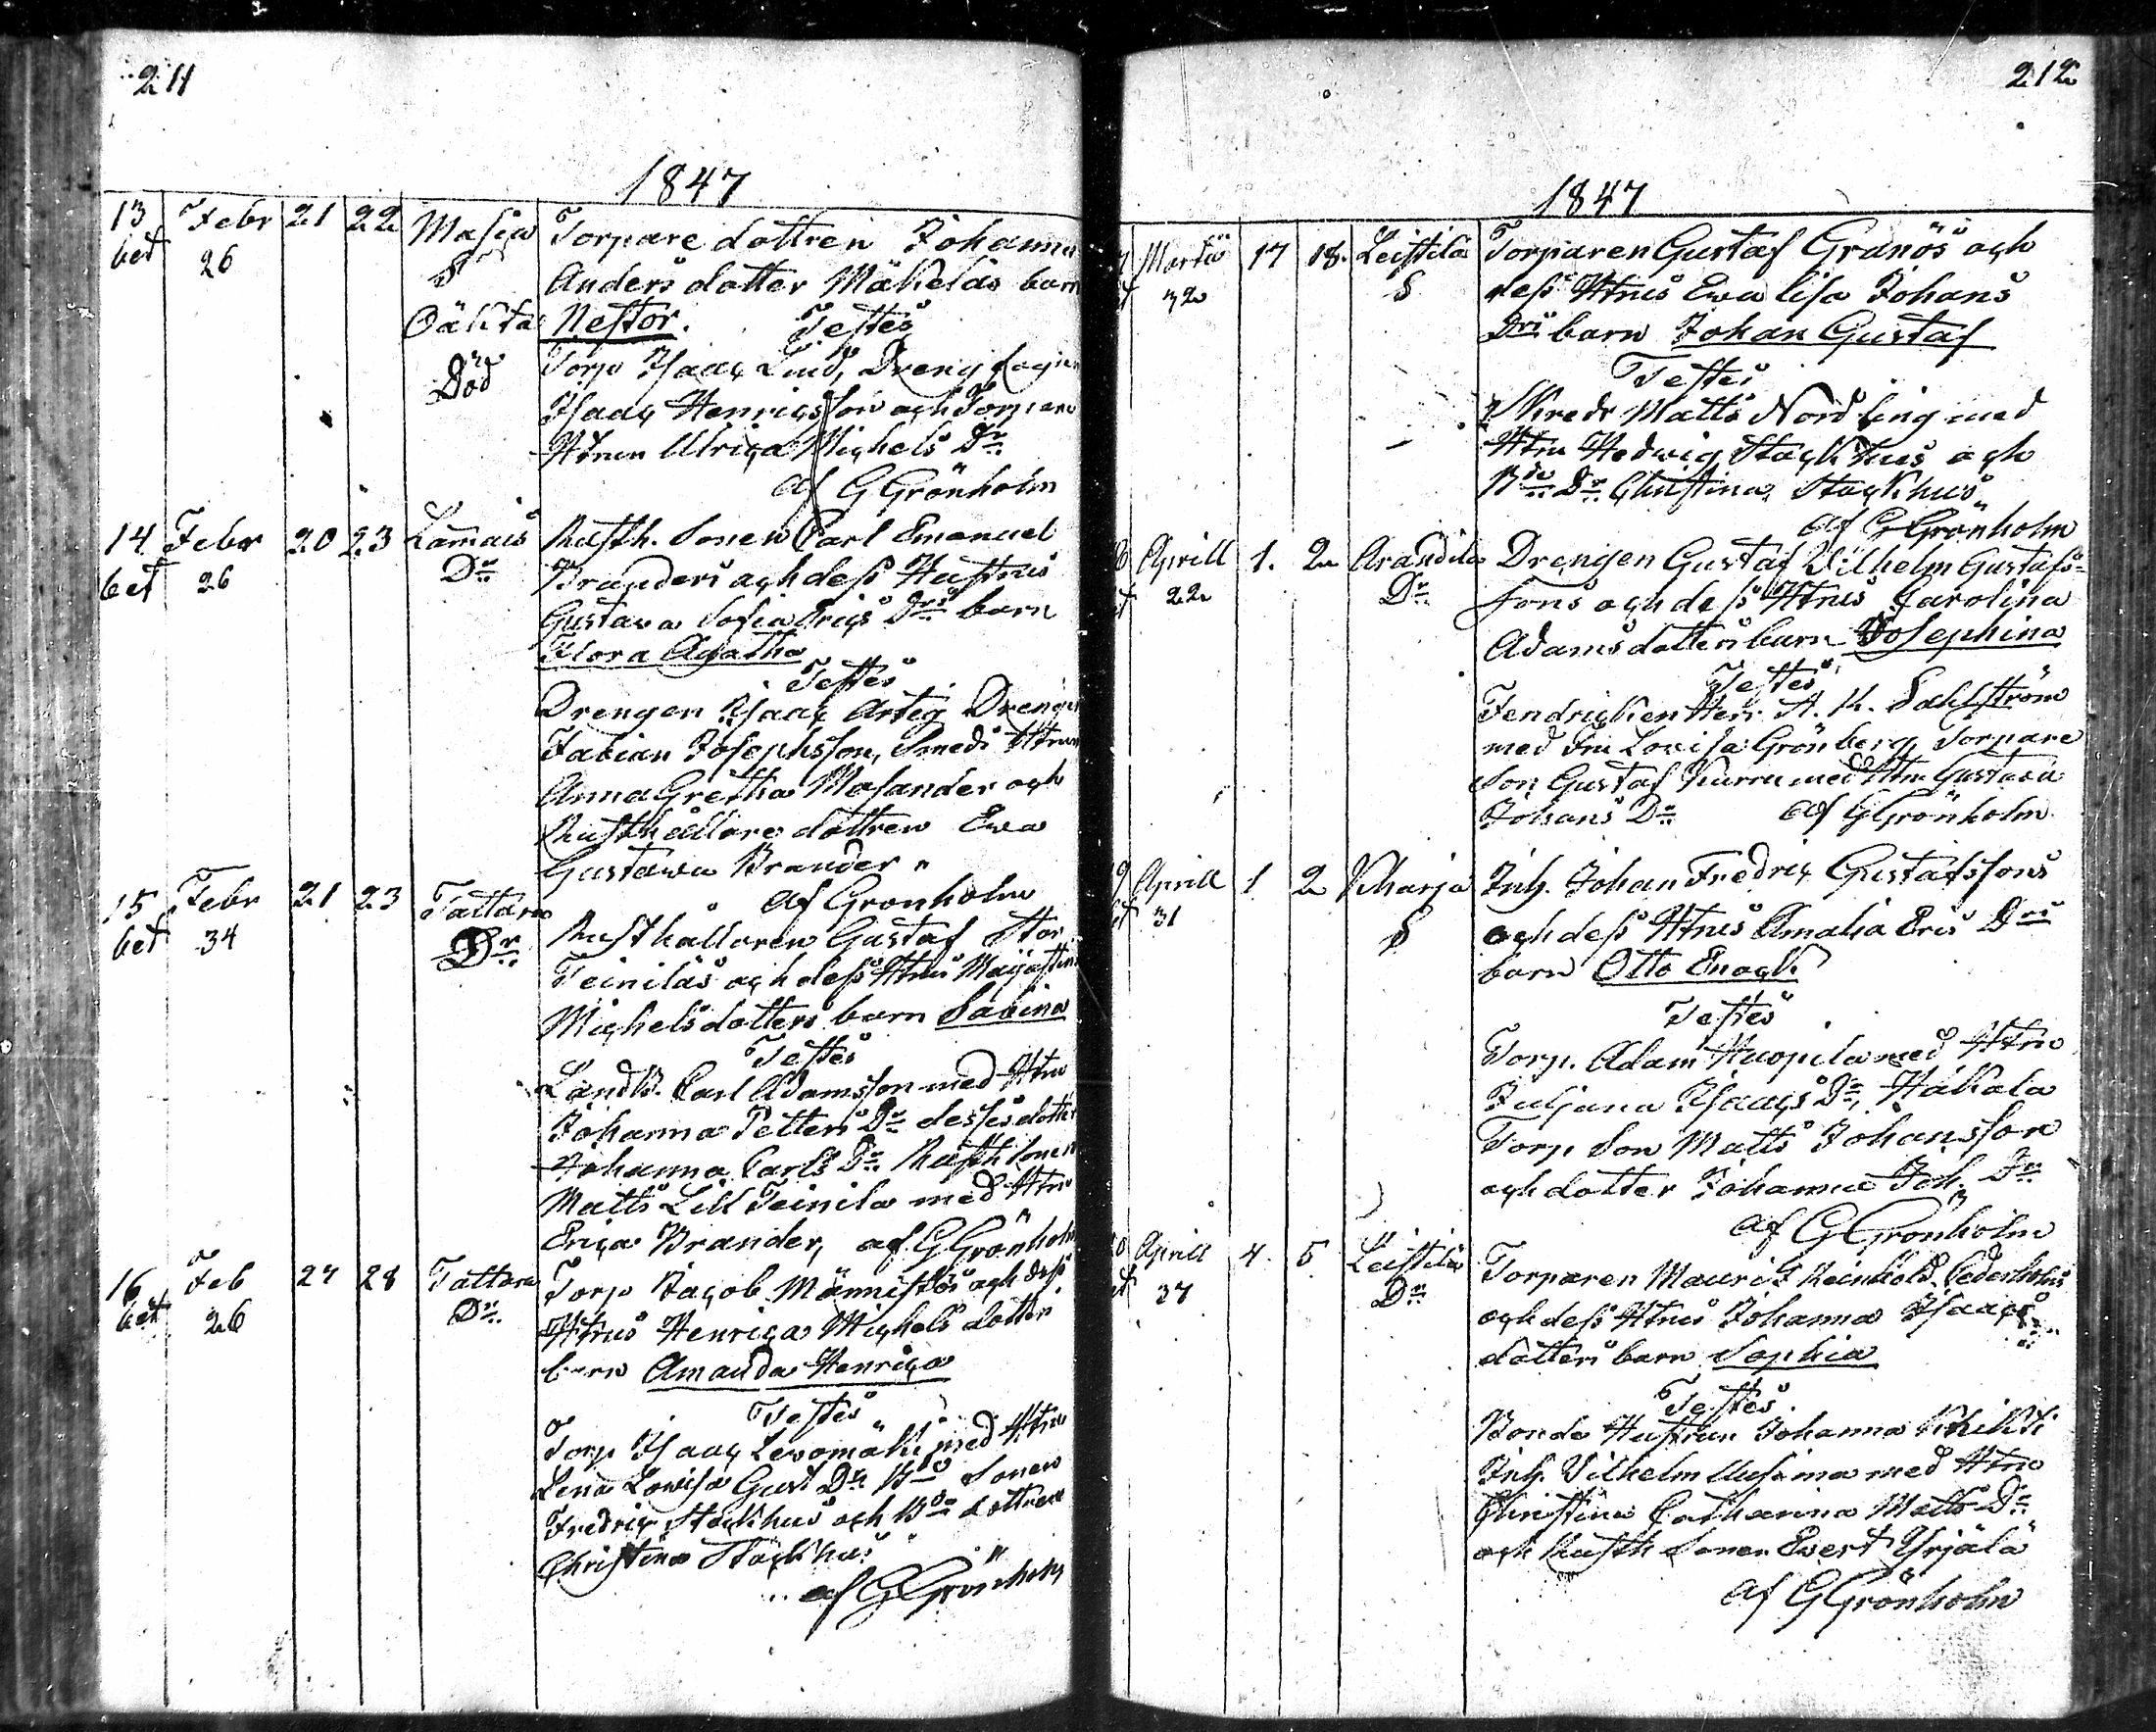 211
1847
13 Febr 21 22 Masia Torpare dottren Johanna
bet 26 S Anders dotter Mäkeläs barn
Oäkta Nestor. Testes
Död Torp Isaac Lind, Dreng
Isaac Henricsson och Torpare
Htrun Ulrica Michels Dr
af G Grönholm
14 Febr 20 23 Lamais Rusth. Sonen Carl Emanuel
bet 26 Dr Branders och dess Hustrus
Gustava Sofia Erics Drs barn
Flora Agatha
Testes
Drengen Isaac Artig Drengen
Fabian Josephsson, Smeds Htrun
Anna Gretha Masander och
Rusthållare dottren Ewa
Gustawa Brander
af Grönholm
15 Febr 21 23 Tattara
bet 34 Dr Rusthållaren Gustaf Stor
Teiniläs och dess Htrus Majastina
Michelsdotters barn Sabina
Testes
Landb. Carl Adamsson med Htru
Johanna Petters Dr desses dotter
Johanna Carls Dr Rusth Sonen
Matts Lill Teinilä med Htru
Erica Brander, af G Grönholm
16 Feb 27 28 Tattara Torp Jacob Männistös och dess
bet 26 Dr Htrus Henrica Michels dotter
barn Amanda Henrica
Testes
Torp Isaac Levomäki med Htru
Lena Lovisa Gust Dr Bde Sonen
Fredric Stackhus och Bde dottren
Christina Stackhus
af G Grönholm
212
1847
Martii 17 18. Leistilä Torparen Gustaf Granös och
32 S dess Htrus Ewa Lisa Johans
Drs barn Johan Gustaf
Testes
Skredr Matts Nordling med
Htru Hedwig Stackhus och
Bde Dr Christina Stackhus
af G Grönholm
Aprill 1. 2 Arandila Drengen Gustaf Wilhelm Gustafs-
22 Dr sons och dess Htrus Carolina
Adamsdotters barn Josephina
Testes
Fendricken Herr A. H. Sahlström
med Fru Lovisa Grönberg, Torpare
Son Gustaf Kurru med Htru Gustava
Johans Dr af G Grönholm
9 Aprill 1 2 Kharja Inh. Johan Fredric Gustafssons
31 S och dess Htrus Amalia Erics Drs
barn Otto Enock
Testes
Torp. Adam Haapila med Htru
Juljana Isaacs Dr, Hakala
Torp Son Matts Johansson
och dotter Johanna Joh. Dr
af G Grönholm
Aprill 4. 5 Leistilä Torparen Maurits Reinhold Cederholms
37 Dr och dess Htrus Johanna Isaacs
dotters barn Sophia
Testes
Bonde Hustrun Johanna Knihti
Inh. Vilhelm Uusima med Htru
Christina Catharina Matts Dr
och Rusth Sonen Evert Yrjälä
af G Grönholm